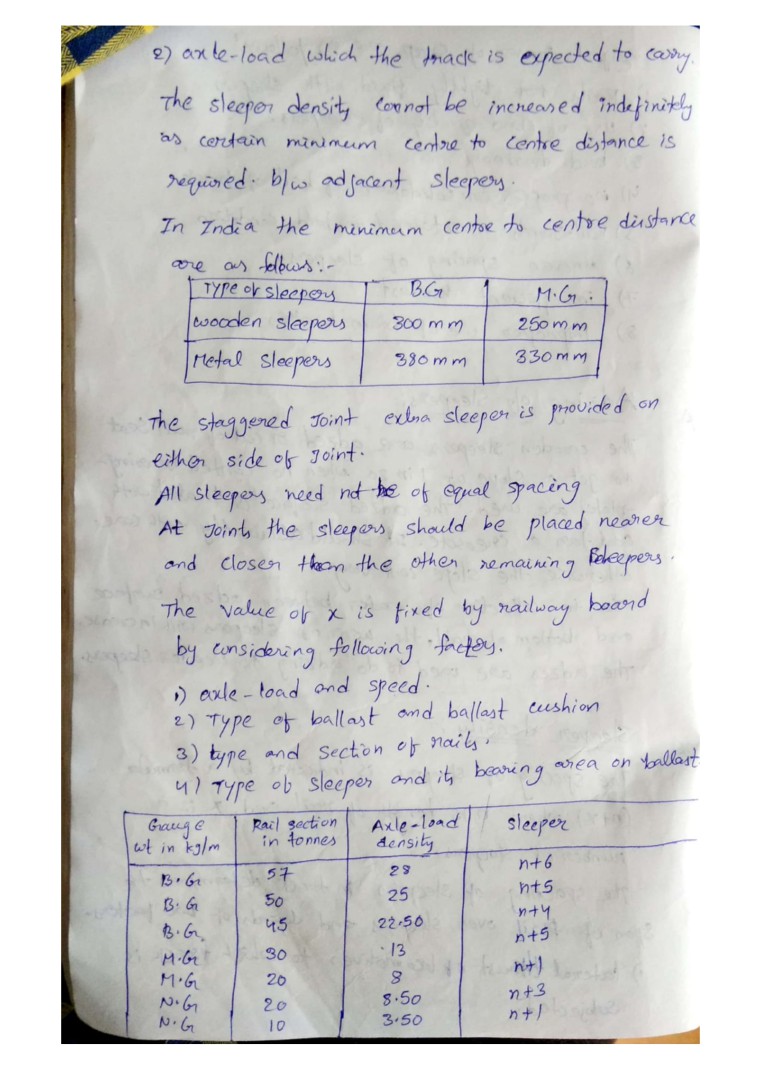 2) axle-load which the track is expected to carry.
The sleeper density connot be increased indefinitely
as certain minimum centre to centre distance is
required. b/w adjacent sleepers.
In India the minimum centre to centre distance
are as follows:-
Type of sleepers B.G M.G.
wooden sleepers 300 mm 250 mm
Metal Sleepers 380 mm 330 mm
The staggered Joint extra sleeper is provided on
either side of Joint.
All sleepers need not be of equal spacing
At Joints the sleepers should be placed nearer
and closer than the other remaining sleepers.
The value of x is fixed by railway board
by considering following factors.
1) axle-load and speed.
2) Type of ballast and ballast cushion
3) type and section of rails.
4) Type of sleeper and its bearing area on ballast
Gauge wt in kg/m Rail section in tonnes Axle-load density Sleeper
B.G 57 28 n+6
B.G 50 25 n+5
B.G. 45 22.50 n+4
M.G 30 13 n+5
M.G 20 8 n+1
N.G 20 8.50 n+3
N.G 10 3.50 n+1